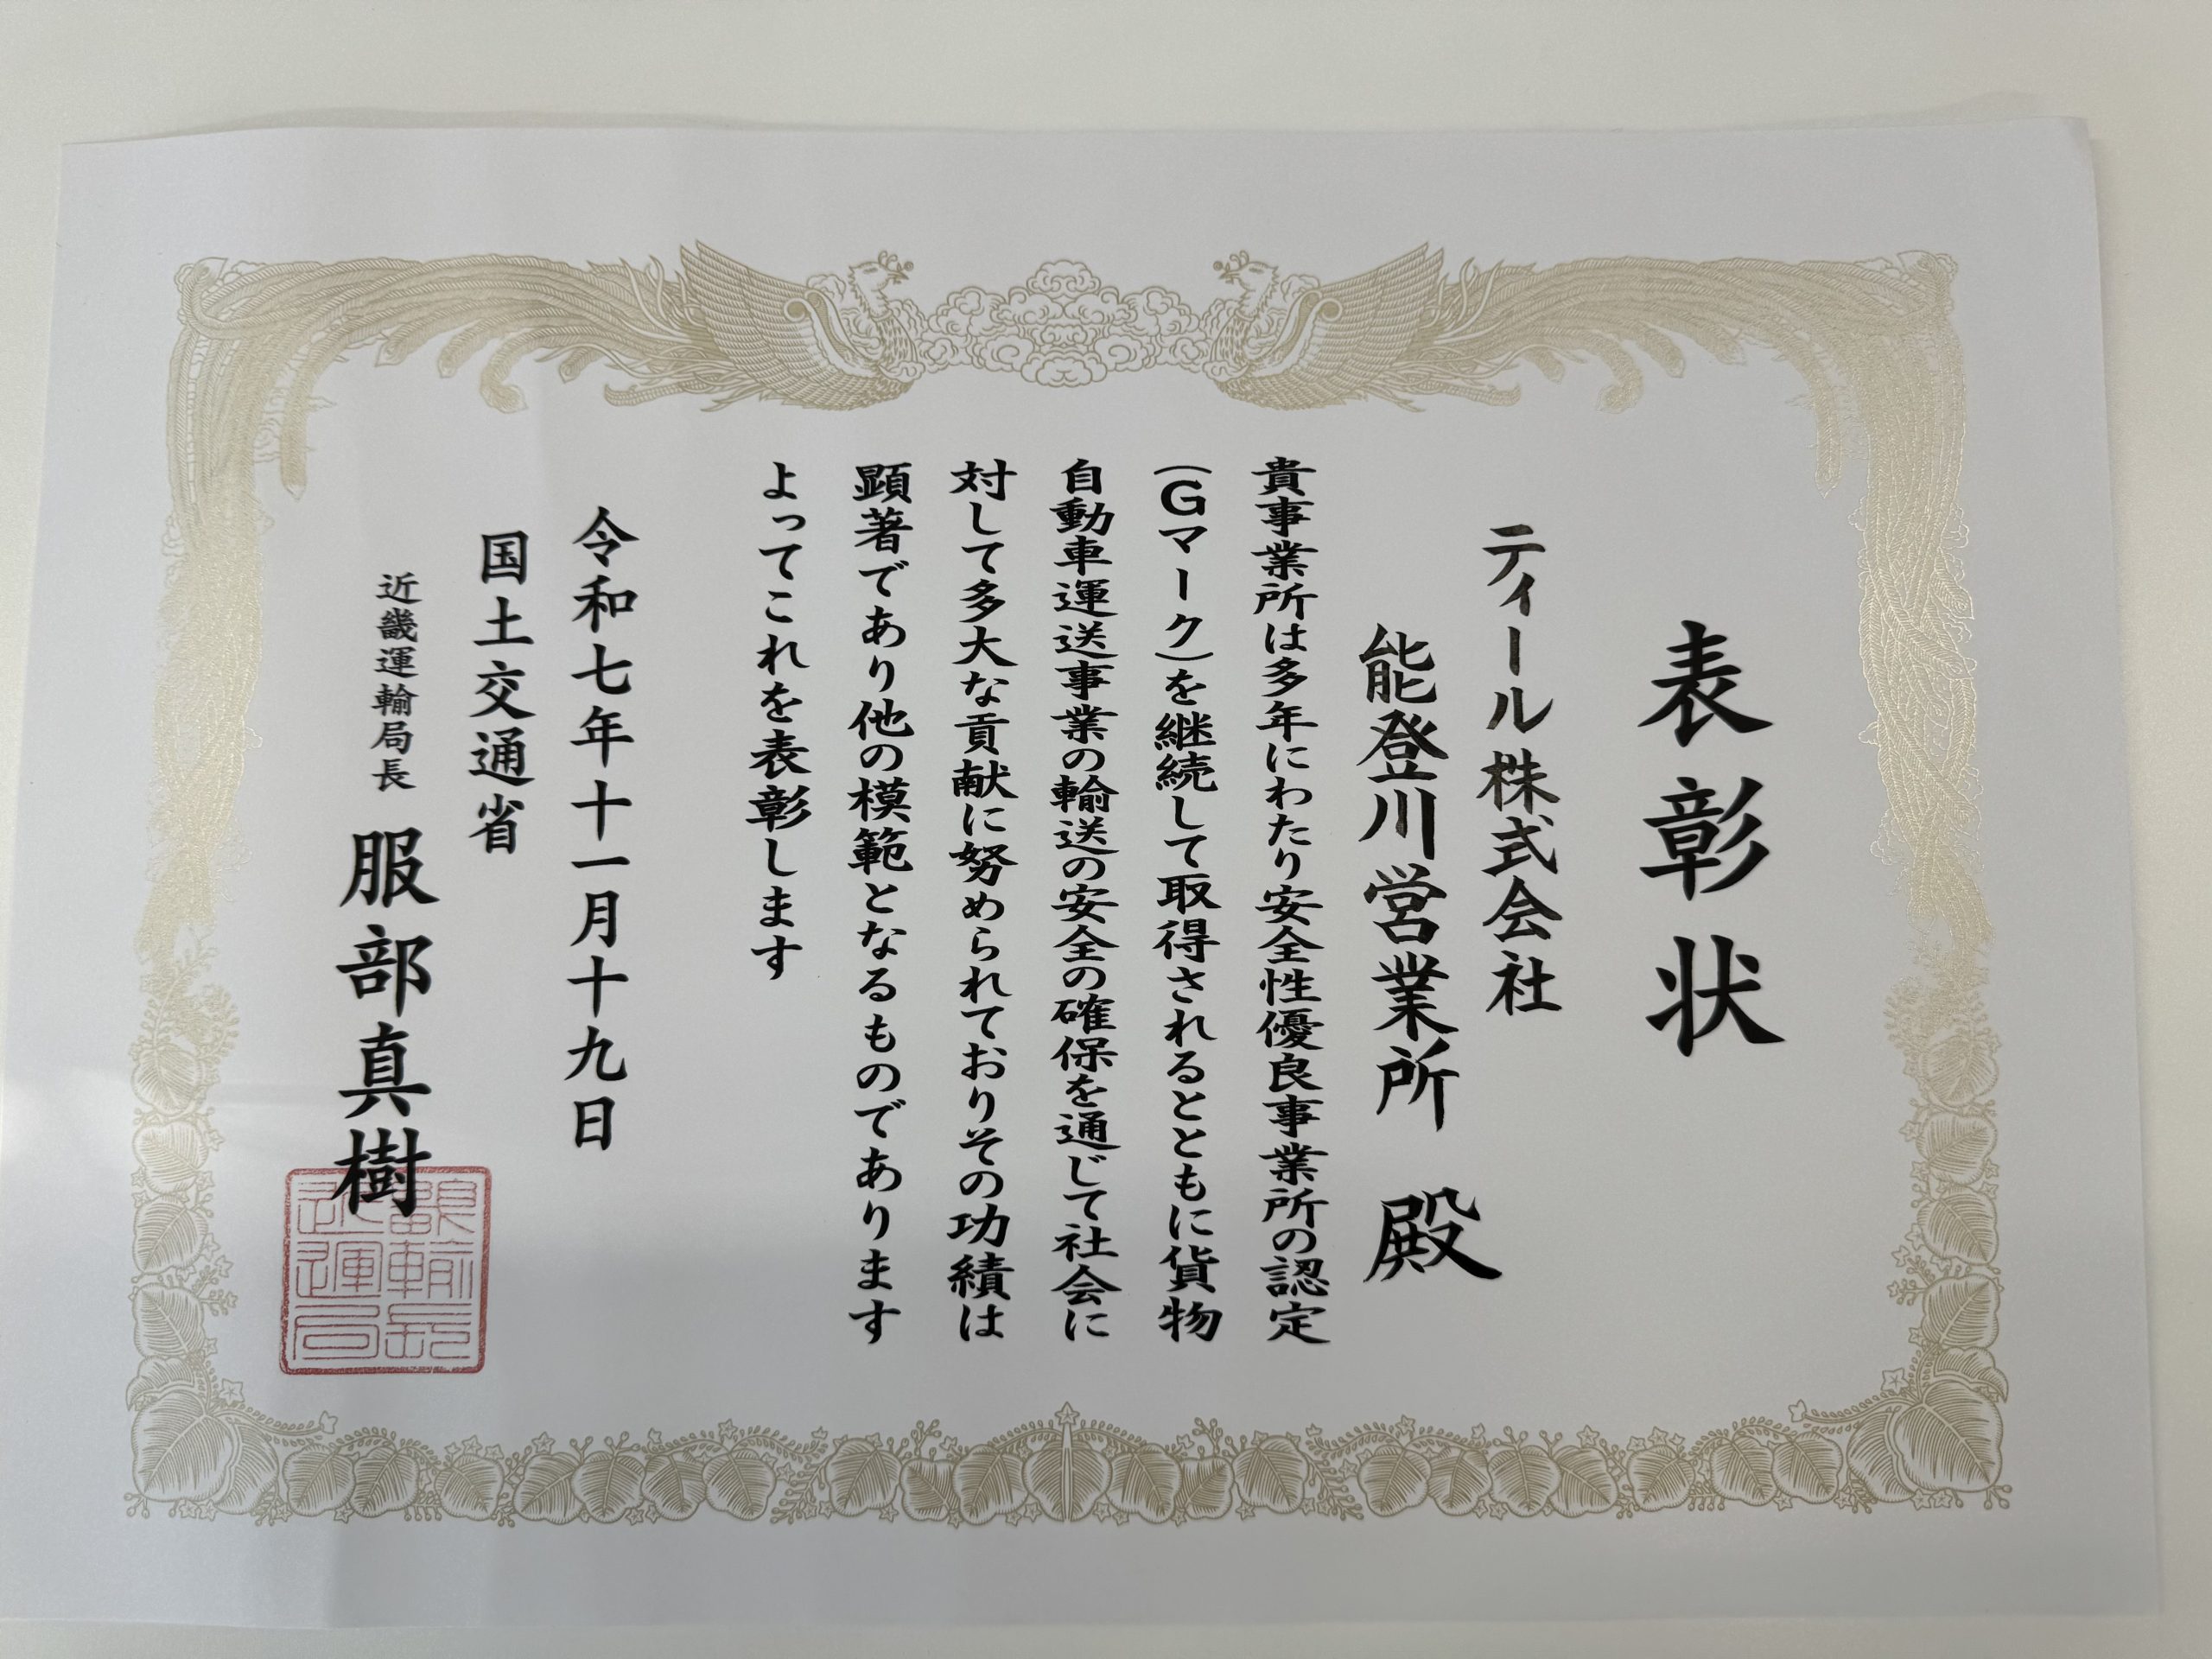 表彰状
ティール株式会社
能登川営業所 殿
貴事業所は多年にわたり安全性優良事業所の認定
(Gマーク)を継続して取得されるとともに貨物
自動車運送事業の輸送の安全の確保を通じて社会に
対して多大な貢献に努められておりその功績は
顕著であり他の模範となるものであります
よってこれを表彰します
令和七年十一月十九日
国土交通省
近畿運輸局長 服部真樹
近畿運輸局長